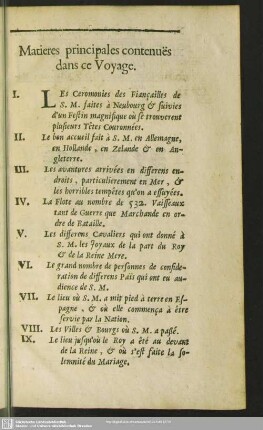 Matieres principales contenuës
dans ce Voyage.
I. LEs Ceremonies des Fiançailles de
S. M. faites à Neubourg & suivies
d'un Festin magnifique où se trouverent
plusieurs Têtes Couronnées.
II. Le bon accueil fait à S. M. en Allemagne,
en Hollande, en Zelande & en An-
gleterre.
III. Les avantures arrivées en differens en-
droits, particulierement en Mer, &
les horribles tempêtes qu'on a essuyées.
IV. La Flote au nombre de 532. Vaisseaux
tant de Guerre que Marchands en or-
dre de Bataille.
V. Les differens Cavaliers qui ont donné à
S. M. les Joyaux de la part du Roy
& de la Reine Mere.
VI. Le grand nombre de personnes de conside-
ration de differens Païs qui ont eu au-
dience de S. M.
VII. Le lieu où S. M. a mit pied à terre en Es-
pagne, & où elle commença à être
servie par la Nation.
VIII. Les Villes & Bourgs où S. M. a passé.
IX. Le lieu jusqu'où le Roy a été au devant
de la Reine, & où s'est faite la so-
lemnité du Mariage.